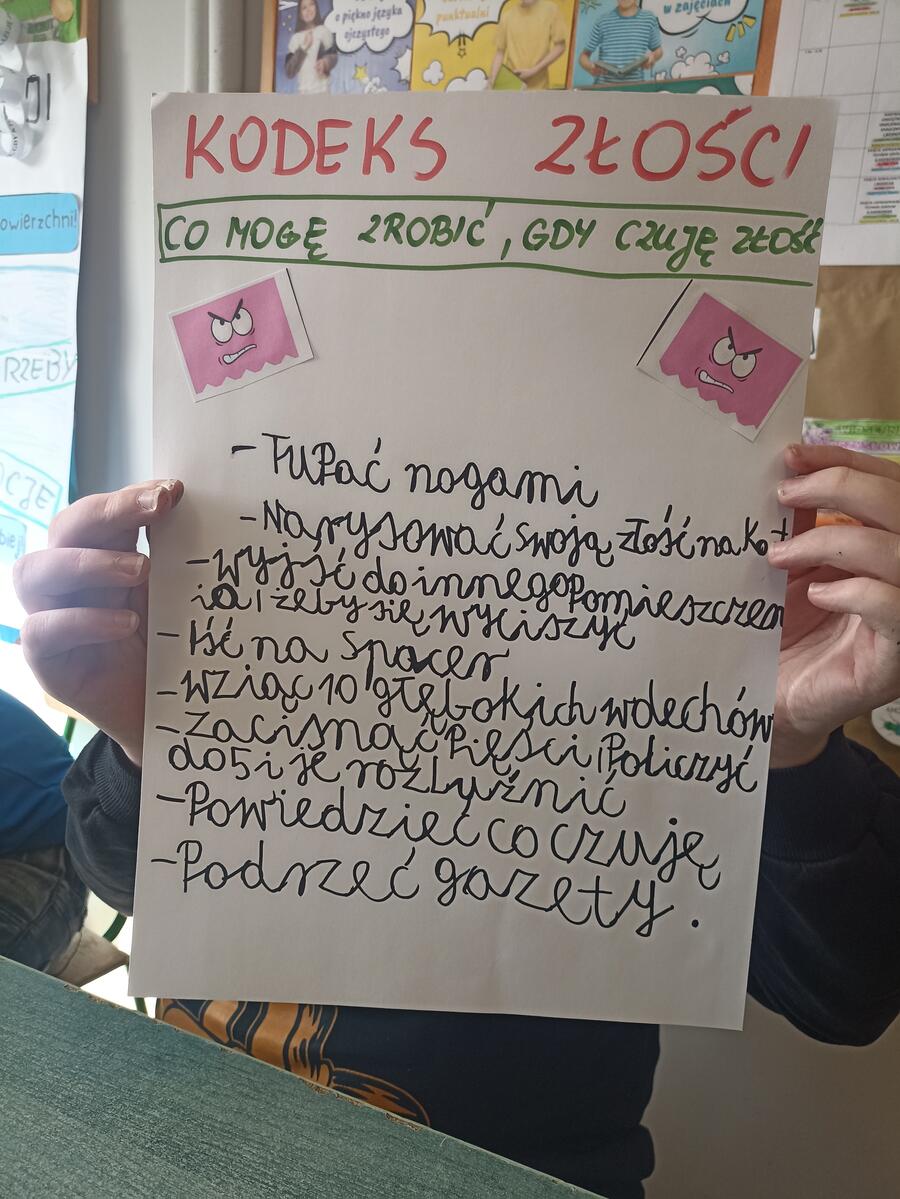 o piękno języka
ojczystego
punktualni
w zajęciach
owierzchni!
RZEBY
OCJE
KODEKS ZŁOŚCI
CO MOGĘ ZROBIĆ, GDY CZUJĘ ZŁOŚĆ
- TUPać nogami
- Narysować swoją złość na Kart
- wyjść do innego Pomieszczen
ia, żeby się wyciszyć
- Iść na spacer
- Wziąć 10 głębokich wdechów
- Zacisnąć Pięści, Policzyć
do 5 i je rozluźnić
- Powiedzieć co czuję
- Podrzeć gazety.